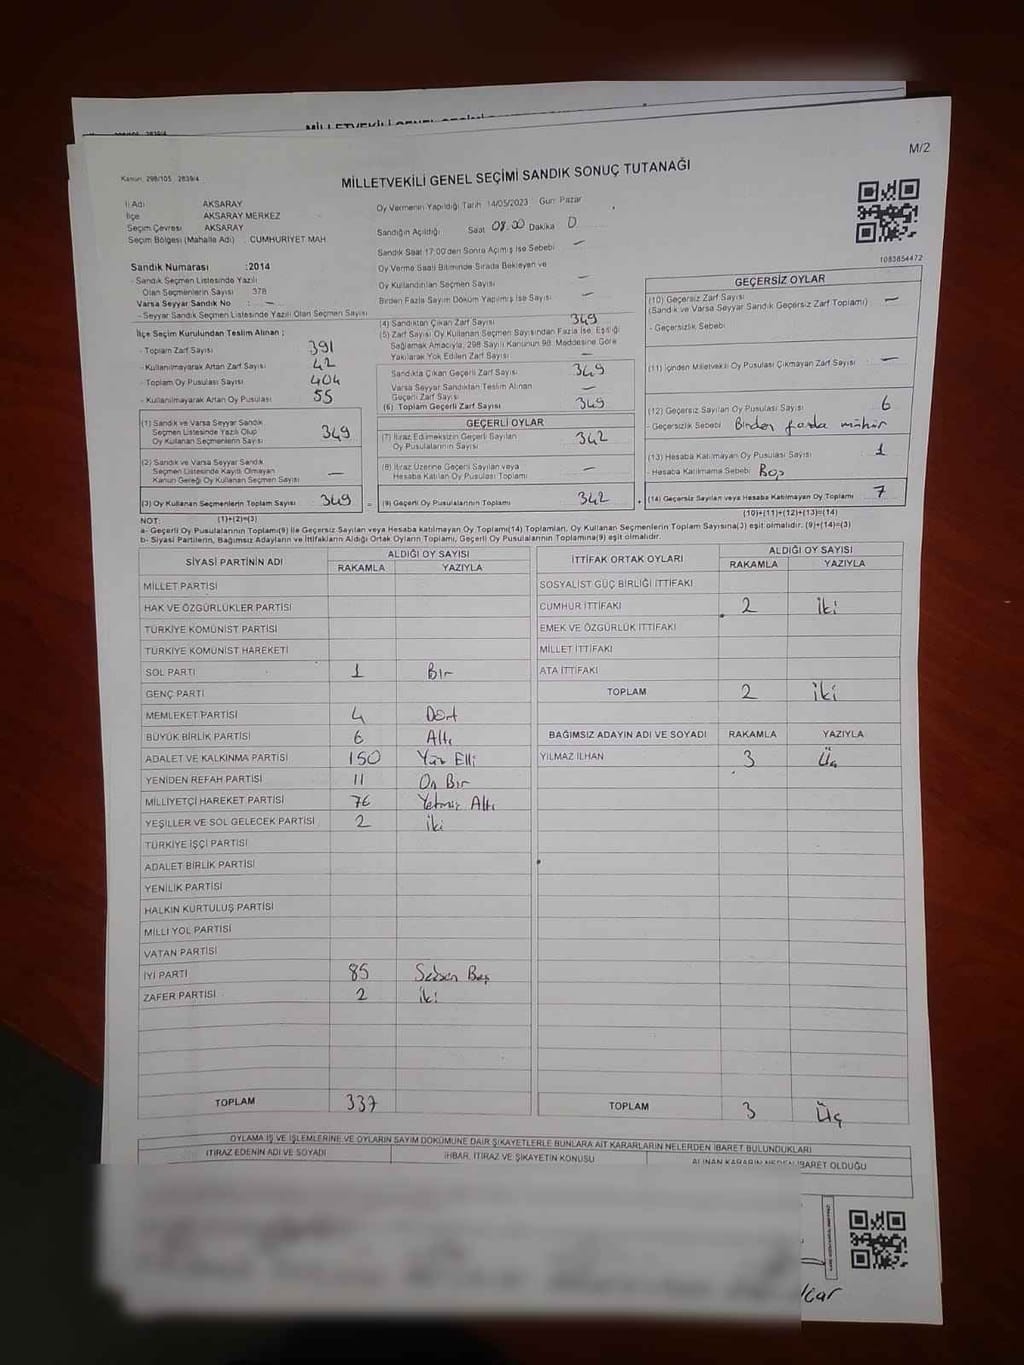 MİLLETVEKİLİ GENEL SEÇİMİ
298/105 2839/4
M/2
Kanun: 298/105 2839/4
MİLLETVEKİLİ GENEL SEÇİMİ SANDIK SONUÇ TUTANAĞI
İl Adı AKSARAY
İlçe AKSARAY MERKEZ
Seçim Çevresi AKSARAY
Seçim Bölgesi (Mahalle Adı) CUMHURİYET MAH
Sandık Numarası :2014
- Sandık Seçmen Listesinde Yazılı
Olan Seçmenlerin Sayısı 378
Varsa Seyyar Sandık No : —
- Seyyar Sandık Seçmen Listesinde Yazılı Olan Seçmen Sayısı
İlçe Seçim Kurulundan Teslim Alınan ;
- Toplam Zarf Sayısı 391
- Kullanılmayarak Artan Zarf Sayısı 42
- Toplam Oy Pusulası Sayısı 404
- Kullanılmayarak Artan Oy Pusulası 55
(1) Sandık ve Varsa Seyyar Sandık
Seçmen Listesinde Yazılı Olup
Oy Kullanan Seçmenlerin Sayısı 349
(2) Sandık ve Varsa Seyyar Sandık
Seçmen Listesinde Kayıtlı Olmayan
Kanun Gereği Oy Kullanan Seçmen Sayısı —
(3) Oy Kullanan Seçmenlerin Toplam Sayısı 349
(1)+(2)=(3)
Oy Vermenin Yapıldığı Tarih 14/05/2023 Gün: Pazar
Sandığın Açıldığı Saat 08.00 Dakika 0
Sandık Saat 17:00'den Sonra Açılmış İse Sebebi —
Oy Verme Saati Bitiminde Sırada Bekleyen ve
Oy Kullandırılan Seçmen Sayısı —
Birden Fazla Sayım Döküm Yapılmış İse Sayısı —
(4) Sandıktan Çıkan Zarf Sayısı 349
(5) Zarf Sayısı Oy Kullanan Seçmen Sayısından Fazla İse, Eşitliği
Sağlamak Amacıyla, 298 Sayılı Kanunun 98. Maddesine Göre
Yakılarak Yok Edilen Zarf Sayısı —
Sandıkta Çıkan Geçerli Zarf Sayısı 349
Varsa Seyyar Sandıktan Teslim Alınan
Geçerli Zarf Sayısı —
(6) Toplam Geçerli Zarf Sayısı 349
GEÇERLİ OYLAR
(7) İtiraz Edilmeksizin Geçerli Sayılan
Oy Pusulalarının Sayısı 342
(8) İtiraz Üzerine Geçerli Sayılan veya
Hesaba Katılan Oy Pusulası Toplamı —
= (9) Geçerli Oy Pusulalarının Toplamı 342
1083854472
GEÇERSİZ OYLAR
(10) Geçersiz Zarf Sayısı
(Sandık ve Varsa Seyyar Sandık Geçersiz Zarf Toplamı) —
- Geçersizlik Sebebi
(11) İçinden Milletvekili Oy Pusulası Çıkmayan Zarf Sayısı : —
(12) Geçersiz Sayılan Oy Pusulası Sayısı 6
- Geçersizlik Sebebi Birden fazla mühür
(13) Hesaba Katılmayan Oy Pusulası Sayısı 1
- Hesaba Katılmama Sebebi Boş
+ (14) Geçersiz Sayılan veya Hesaba Katılmayan Oy Toplamı 7
(10)+(11)+(12)+(13)=(14)
NOT:
a- Geçerli Oy Pusulalarının Toplamı(9) ile Geçersiz Sayılan veya Hesaba Katılmayan Oy Toplamı(14) Toplamları, Oy Kullanan Seçmenlerin Toplam Sayısına(3) eşit olmalıdır. (9)+(14)=(3)
b- Siyasi Partilerin, Bağımsız Adayların ve İttifakların Aldığı Ortak Oyların Toplamı, Geçerli Oy Pusulalarının Toplamına(9) eşit olmalıdır.
SİYASİ PARTİNİN ADI ALDIĞI OY SAYISI
RAKAMLA YAZIYLA
MİLLET PARTİSİ
HAK VE ÖZGÜRLÜKLER PARTİSİ
TÜRKİYE KOMÜNİST PARTİSİ
TÜRKİYE KOMÜNİST HAREKETİ
SOL PARTİ 1 Bir
GENÇ PARTİ
MEMLEKET PARTİSİ 4 Dört
BÜYÜK BİRLİK PARTİSİ 6 Altı
ADALET VE KALKINMA PARTİSİ 150 Yüz Elli
YENİDEN REFAH PARTİSİ 11 On Bir
MİLLİYETÇİ HAREKET PARTİSİ 76 Yetmiş Altı
YEŞİLLER VE SOL GELECEK PARTİSİ 2 iki
TÜRKİYE İŞÇİ PARTİSİ
ADALET BİRLİK PARTİSİ
YENİLİK PARTİSİ
HALKIN KURTULUŞ PARTİSİ
MİLLİ YOL PARTİSİ
VATAN PARTİSİ
İYİ PARTİ 85 Seksen Beş
ZAFER PARTİSİ 2 iki
TOPLAM 337
İTTİFAK ORTAK OYLARI ALDIĞI OY SAYISI
RAKAMLA YAZIYLA
SOSYALİST GÜÇ BİRLİĞİ İTTİFAKI
CUMHUR İTTİFAKI 2 iki
EMEK VE ÖZGÜRLÜK İTTİFAKI
MİLLET İTTİFAKI
ATA İTTİFAKI
TOPLAM 2 iki
BAĞIMSIZ ADAYIN ADI VE SOYADI RAKAMLA YAZIYLA
YILMAZ İLHAN 3 Üç
TOPLAM 3 Üç
OYLAMA İŞ VE İŞLEMLERİNE VE OYLARIN SAYIM DÖKÜMÜNE DAİR ŞİKAYETLERLE BUNLARA AİT KARARLARIN NELERDEN İBARET BULUNDUKLARI
İTİRAZ EDENİN ADI VE SOYADI İHBAR, İTİRAZ VE ŞİKAYETİN KONUSU ALINAN KARARIN NEDEN İBARET OLDUĞU